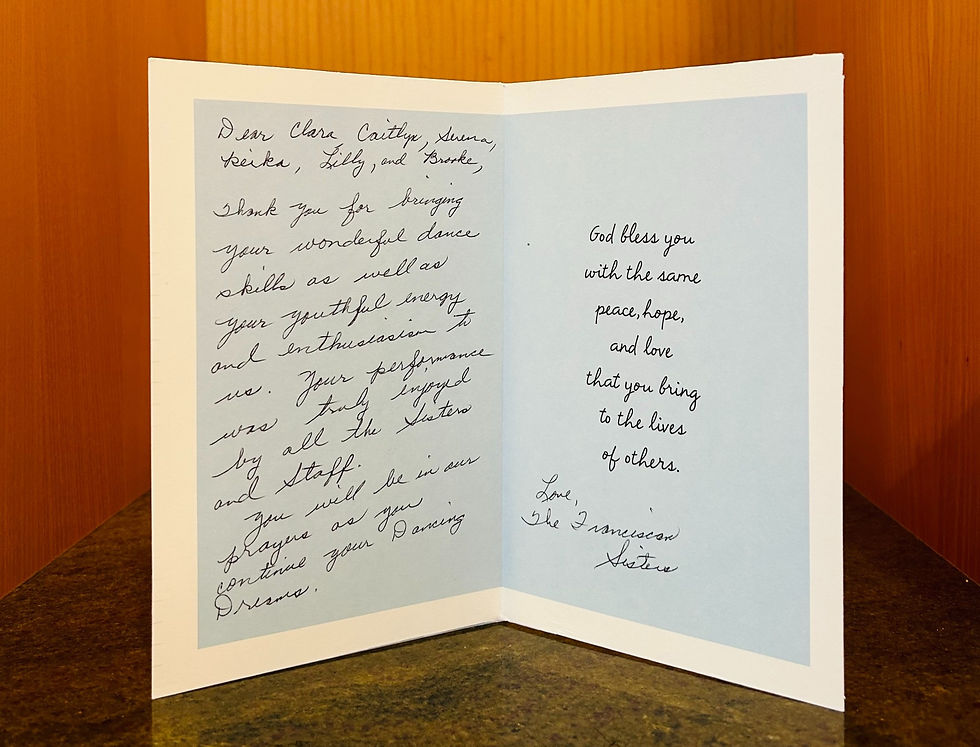 Dear Clara, Caitlyn, Serena,
Reika, Lilly, and Brooke,
Thank you for bringing
your wonderful dance
skills as well as
your youthful energy
and enthusiasism to
us. Your performance
was truly enjoyed
by all the Sisters
and Staff.
You will be in our
prayers as you
continue your Dancing
Dreams.
God bless you
with the same
peace, hope,
and love
that you bring
to the lives
of others.
Love,
The Franciscan
Sisters